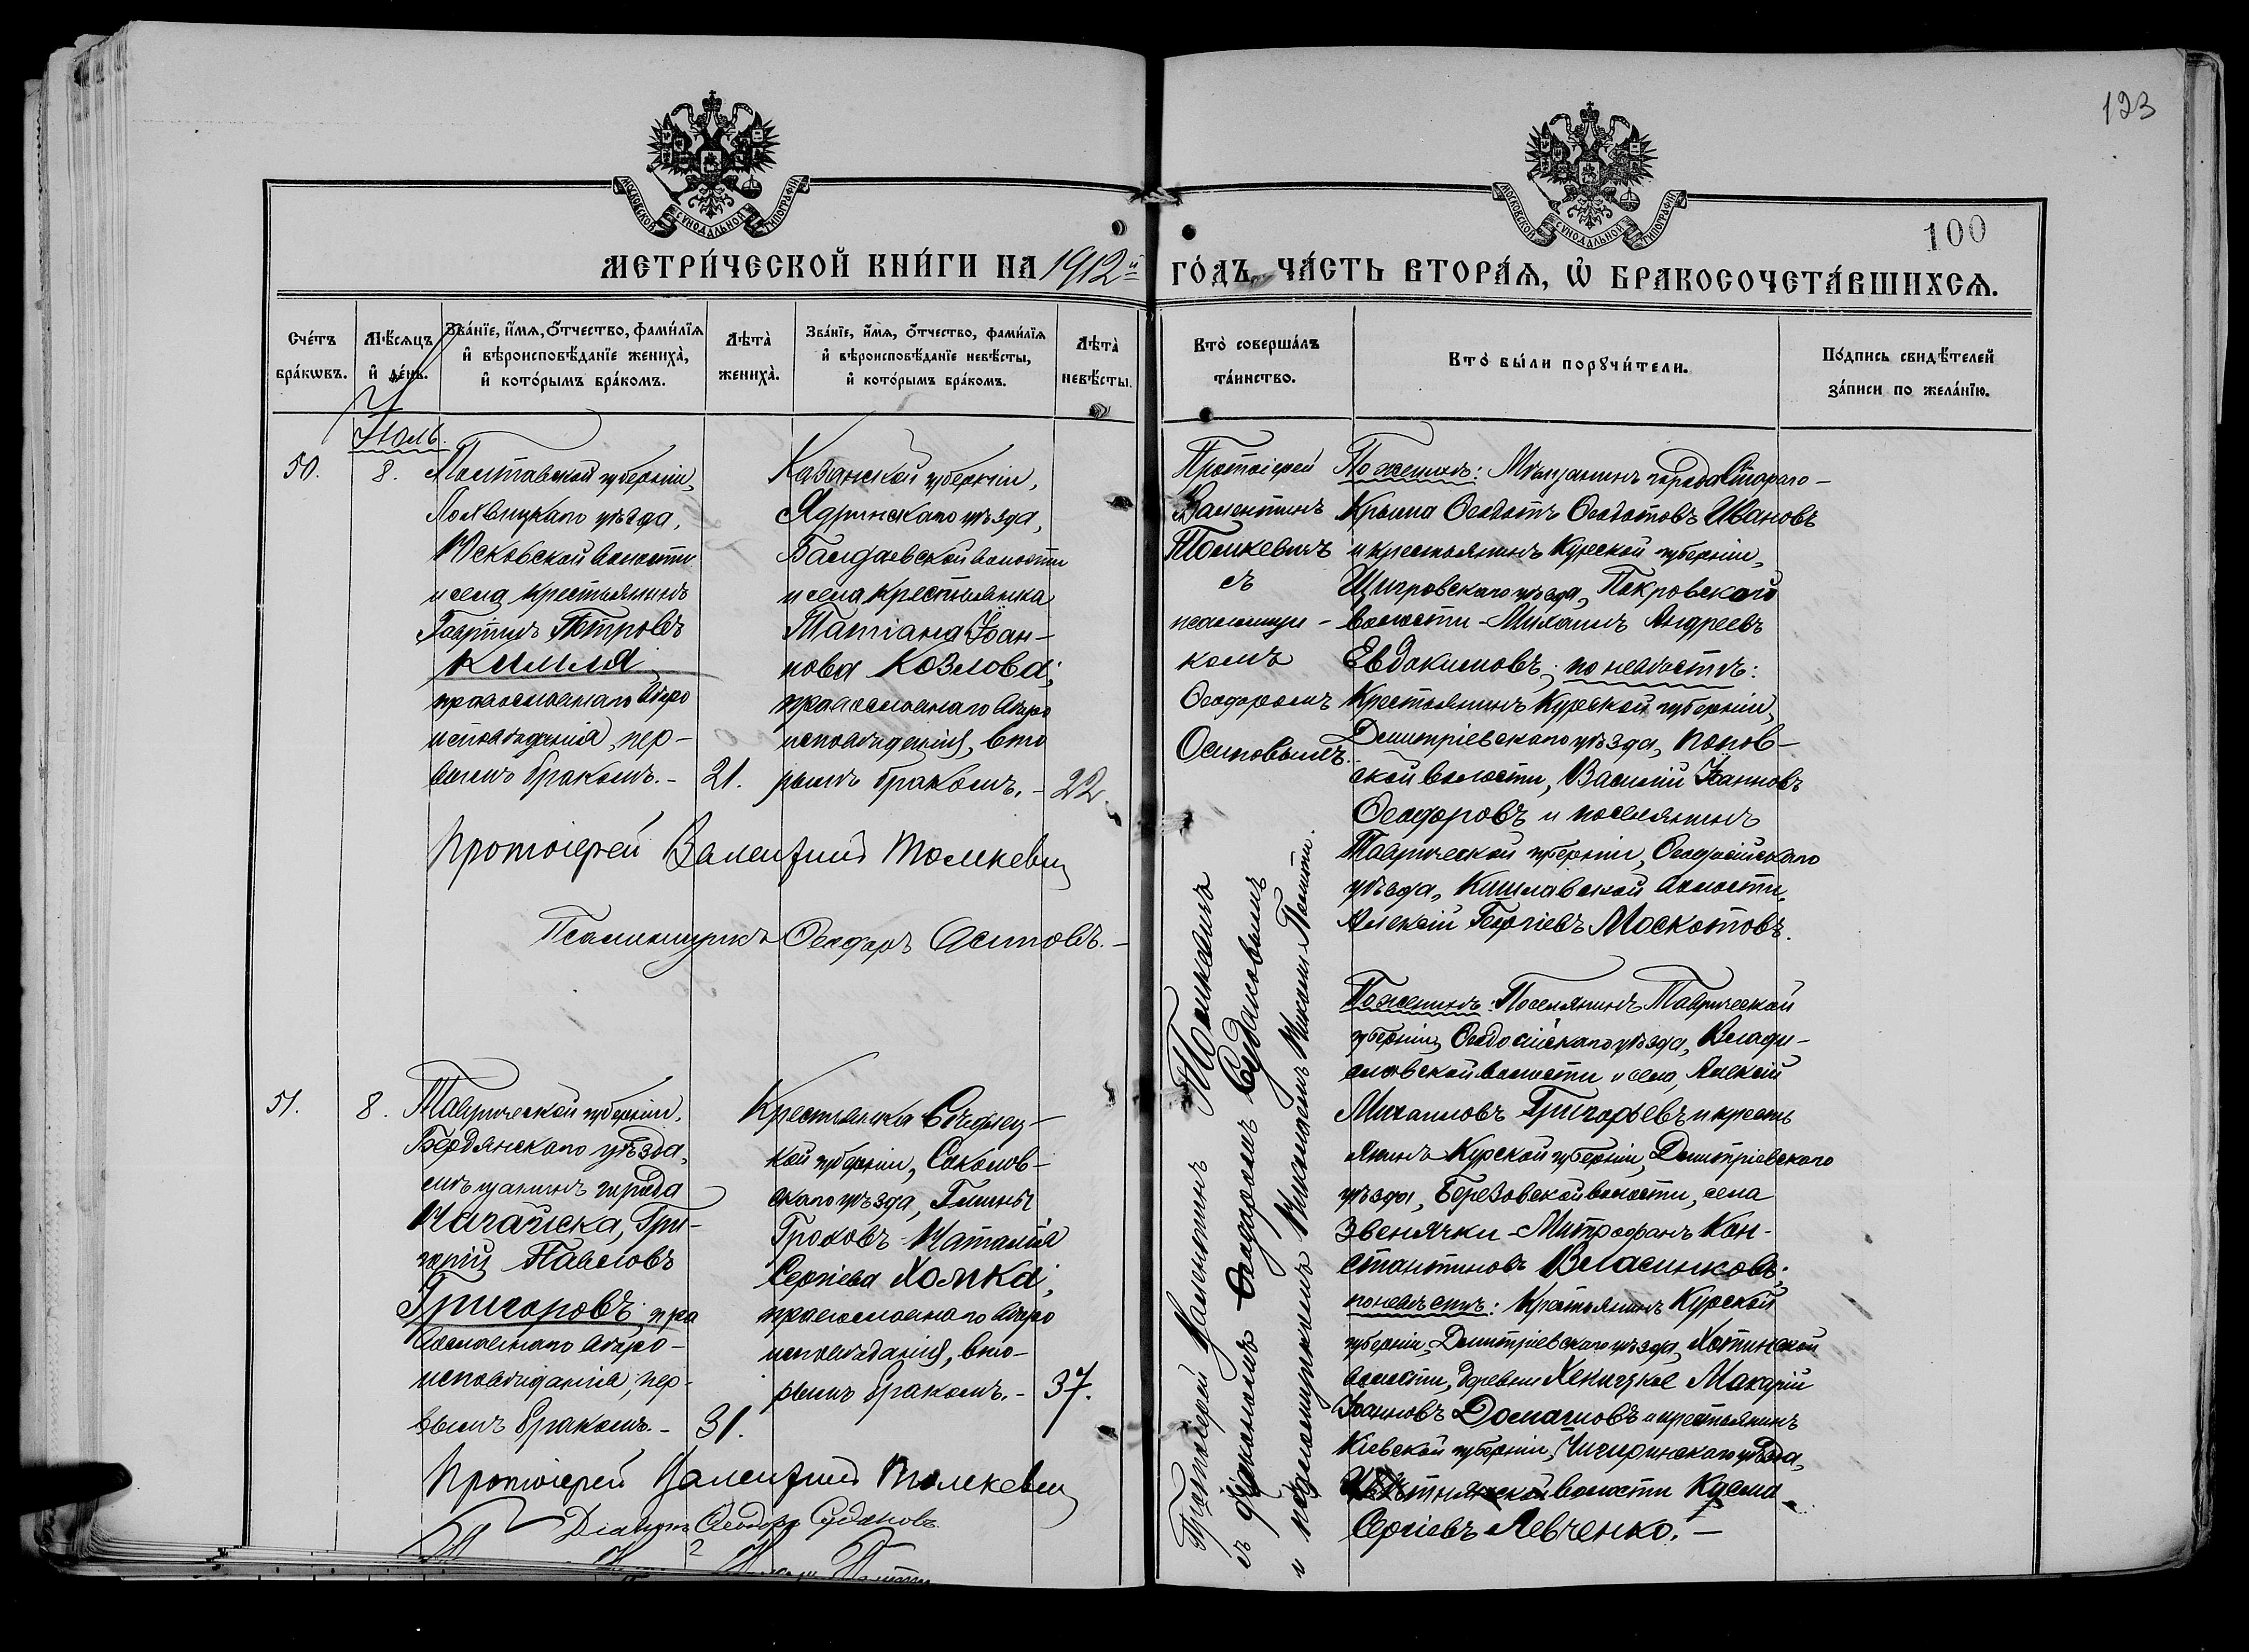 123
МОСКОВСКОЙ СѴНОДАЛЬНОЙ ТИПОГРАФІИ
МОСКОВСКОЙ СѴНОДАЛЬНОЙ ТИПОГРАФІИ
100
МЕТРИ́ЧЕСКОЙ КНИ́ГИ НА 1912й ГО́ДЪ, ЧА́СТЬ ВТОРА́Я, Ѡ БРАКОСОЧЕТА́ВШИХСЯ.
Сче́тъ бра́кѡвъ.
Мѣ́сяцъ и де́нь.
Зва́нїе, и́мя, о́тчество, фами́лїя
и вѣроисповѣ́данїе жениха̀,
и кото́рымъ бра́комъ.
Лѣта̀ жениха̀.
Зва́нїе, и́мя, о́тчество, фами́лїя
и вѣроисповѣ́данїе невѣ́сты,
и кото́рымъ бра́комъ.
Лѣта̀ невѣ́сты.
Кто̀ соверша́лъ та́инство.
Кто̀ бы́ли порꙋчи́тели.
По́дпись свидѣ́телей за́писи по жела́нїю.
Іюль.
50.
8.
Полтавской губерніи,
Лохвицкаго уѣзда,
Юсковской волости
и села крестьянинъ
Петровъ
Кимля,
православнаго вѣро
исповѣданія, пер-
вымъ бракомъ. -
21.
Казанской губерніи,
Ядринскаго уѣзда,
Балдаевской волости
и села крестьянка
Татіана Іоан-
нова Козлова;
православнаго вѣро
исповѣданія, вто
рымъ бракомъ. -
22.
Протоіерей
Валентинъ
Толкевичъ
съ
псаломщи-
комъ
Ѳеодоромъ
Осиповымъ.
По женихѣ: Мѣщанинъ города Стараго-
Крыма Ѳеодотъ Ѳеодотовъ Ивановъ
и крестьянинъ Курской губерніи,
Щигровскаго уѣзда, Покровской
волости - Михаилъ Андреевъ
Евдокимовъ; по невѣстѣ:
Крестьянинъ Курской губерніи,
Димитріевскаго уѣзда, Попов-
ской волости, Василій Іоанновъ
Ѳеодоровъ и поселянинъ
Таврической губерніи, Ѳеодосійскаго
уѣзда, Кишлавской волости,
Алексій Георгіевъ Москотовъ.
Протоіерей Валентинъ Толкевич
Псаломщикъ Ѳеодоръ Осиповъ. -
51.
8.
Таврической губерніи,
Бердянскаго уѣзда,
мѣщанинъ города
Ногайска, Гри-
горій Павловъ
Григоровъ, пра
вославнаго вѣро-
исповѣданія, пер-
вымъ бракомъ. -
31.
Крестьянка Сѣдлец-
кой губерніи, Соколов-
скаго уѣзда, Гмины
Гроховъ - Наталія
Сергіева Хомка;
православнаго вѣро
исповѣданія, вто-
рымъ бракомъ. -
37.
Протоіерей Валентинъ Толкевичъ
съ діакономъ Ѳеодоромъ Судаковымъ
и псаломщикомъ Николаемъ
По женихѣ: Поселянинъ Таврической
губерніи, Ѳеодосійскаго уѣзда, Влади-
славской волости и села, Алексій
Михаиловъ Григорьевъ и кресть
янинъ Курской губерніи, Димитріевскаго
уѣзда, Березовской волости, села
Звенячки - Митрофанъ Кон-
стантиновъ Власенковъ;
по невѣстѣ: Крестьянинъ Курской
губерніи, Димитріевскаго уѣзда, Хотинской
волости, деревни Макарій
Іоанновъ Домашовъ и крестьянинъ
Кіевской губерніи, Чигиринскаго уѣзда,
волости Косма
Сергіевъ Левченко. -
Протоіерей Валентинъ Толкевич
Діаконъ Ѳеодоръ Судаковъ